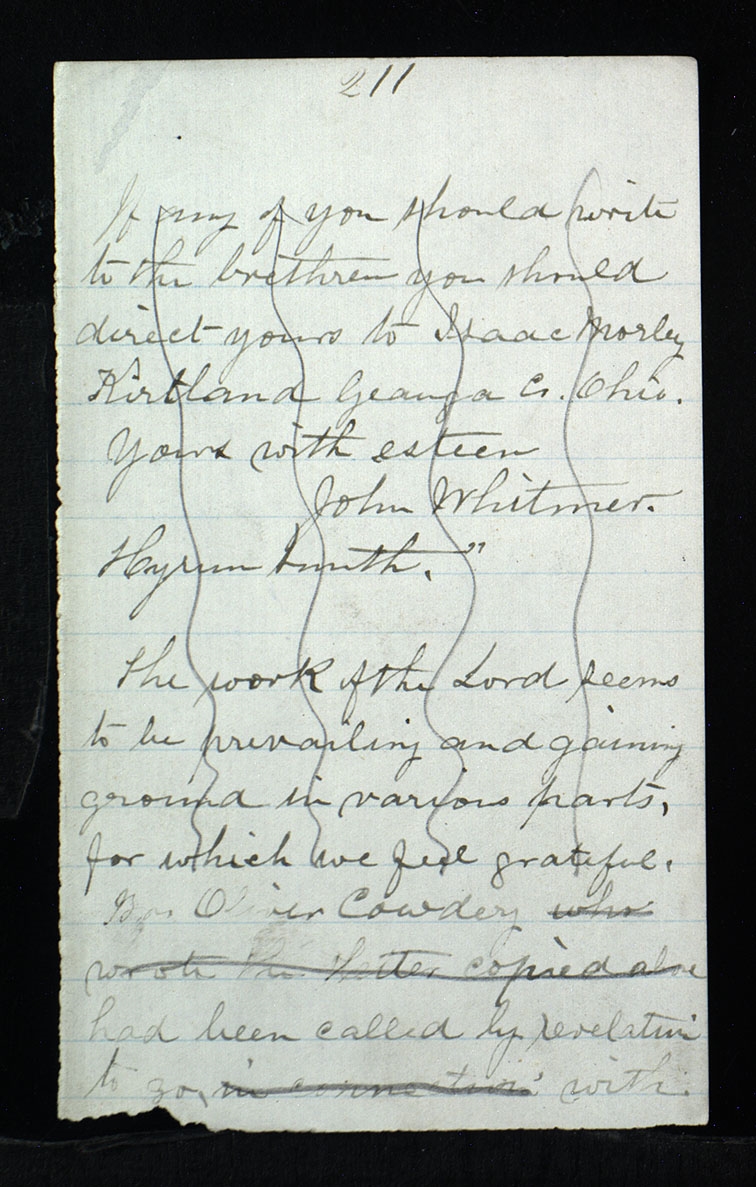 211
If any of you should write
to the brethren you should
direct yours to Isaac Morley
Kirtland Geauga Co. Ohio.
Yours with esteen
John Whitmer.
Hyrum Smith."
The work of the Lord seems
to be prevailing and gaining
ground in various parts,
for which we feel grateful.
Oliver Cowdery who
wrote the letter copied above
had been called by revelation
to go, in connection with